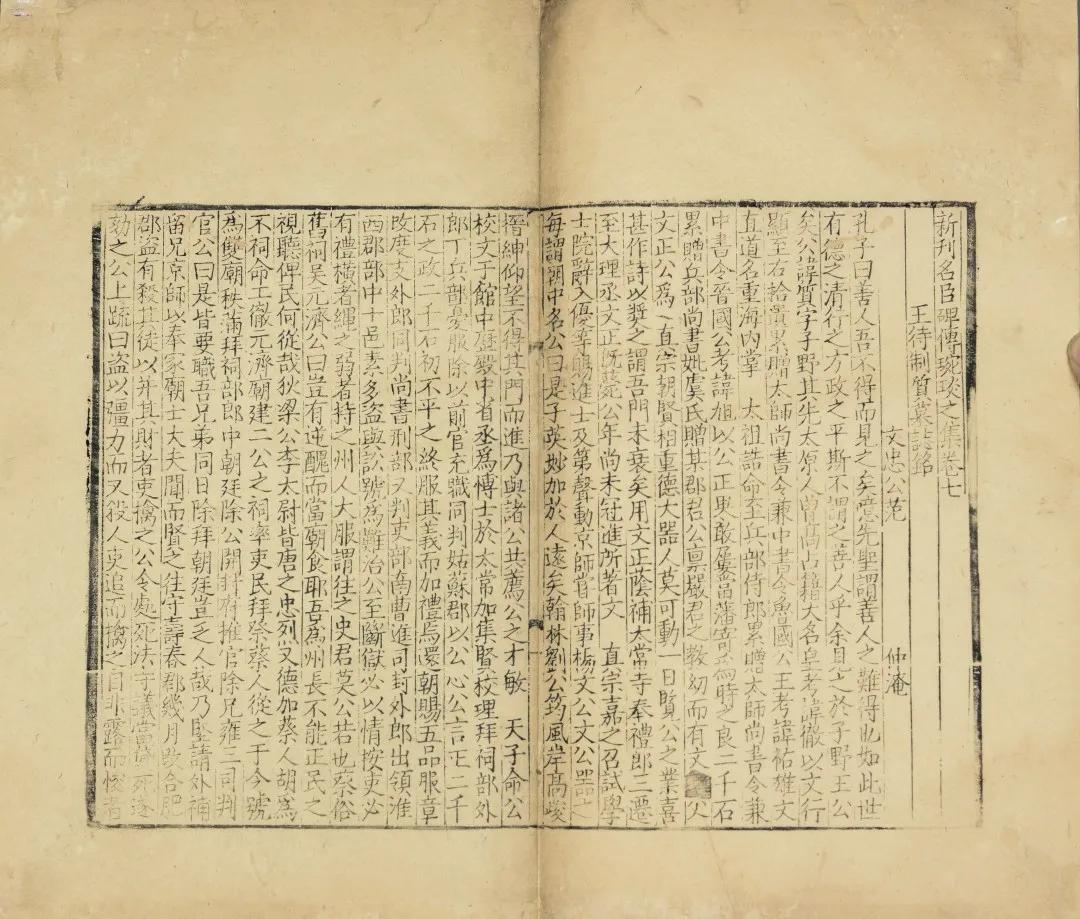 新刊名臣碑傳琬琰之集卷七
王待制質墓誌銘
文忠公范　仲淹
孔子曰善人吾不得而見之矣意先聖謂善人之難得也如此世
有德之清行之方政之平斯不謂之善人乎余見之於子野王公
矣公諱質字子野其先太原人曾高占籍大名皇考諱徹以文行
顯至右拾遺累贈太師尚書令兼中書令魯國公王考諱祐雄文
直道名重海內掌　太祖誥命至兵部侍郎累贈太師尚書令兼
中書令晉國公考諱旭以公正果敢屢當藩寄為時之良二千石
累贈兵部尚書妣虞氏贈某郡君公禀嚴君之教幼而有文　父
文正公為　真宗朝賢相重德大器人莫可動一日覽公之業喜
甚作詩以奬之謂吾門未衰矣用文正蔭補太常寺奉禮郎三遷
至大理丞文正既薨公年尚未冠進所著文　真宗嘉之召試學
士院辭入優等賜進士及第聲動京師嘗師事楊文公文公器之
每謂朝中名公曰是子英妙加於人遠矣翰林劉公筠風岸高峻
搢紳仰望不得其門而進乃與諸公共薦公之才敏　天子命公
校文于館中歷殿中省丞為博士於太常加集賢校理拜祠部外
郎丁兵部憂服除以前官充職同判姑蘇郡以公心公言正二千
石之政二千石初不平之終服其義而加禮焉還朝賜五品服章
改度支外郎同判尚書刑部又判吏部南曹進司封外郎出領淮
西郡部中十邑素多盜與訟號為難治公至斷獄必以情按吏必
有禮橫者繩之弱者持之州人大服謂往之史君莫公若也蔡俗
舊祠吳元濟公曰豈有逆醜而當廟食耶吾為州長不能正民之
視聽俾民何從哉狄梁公李太尉皆唐之忠烈又德加蔡人胡為
不祠命工徹元濟廟建二公之祠率吏民拜祭蔡人從之于今號
為雙廟秩滿拜祠部郎中朝廷除公開封府推官除兄雍三司判
官公曰是皆要職吾兄弟同日除拜朝廷豈乏人哉乃堅請外補
留兄京師以奉家廟士大夫聞而賢之往守壽春郡幾月改合肥
郡盜有殺其徒以并其財者吏擒之公令處死法寺議當貸死遂
劾之公上疏曰盜以彊力而又殺人吏追而擒之自非露而悛者